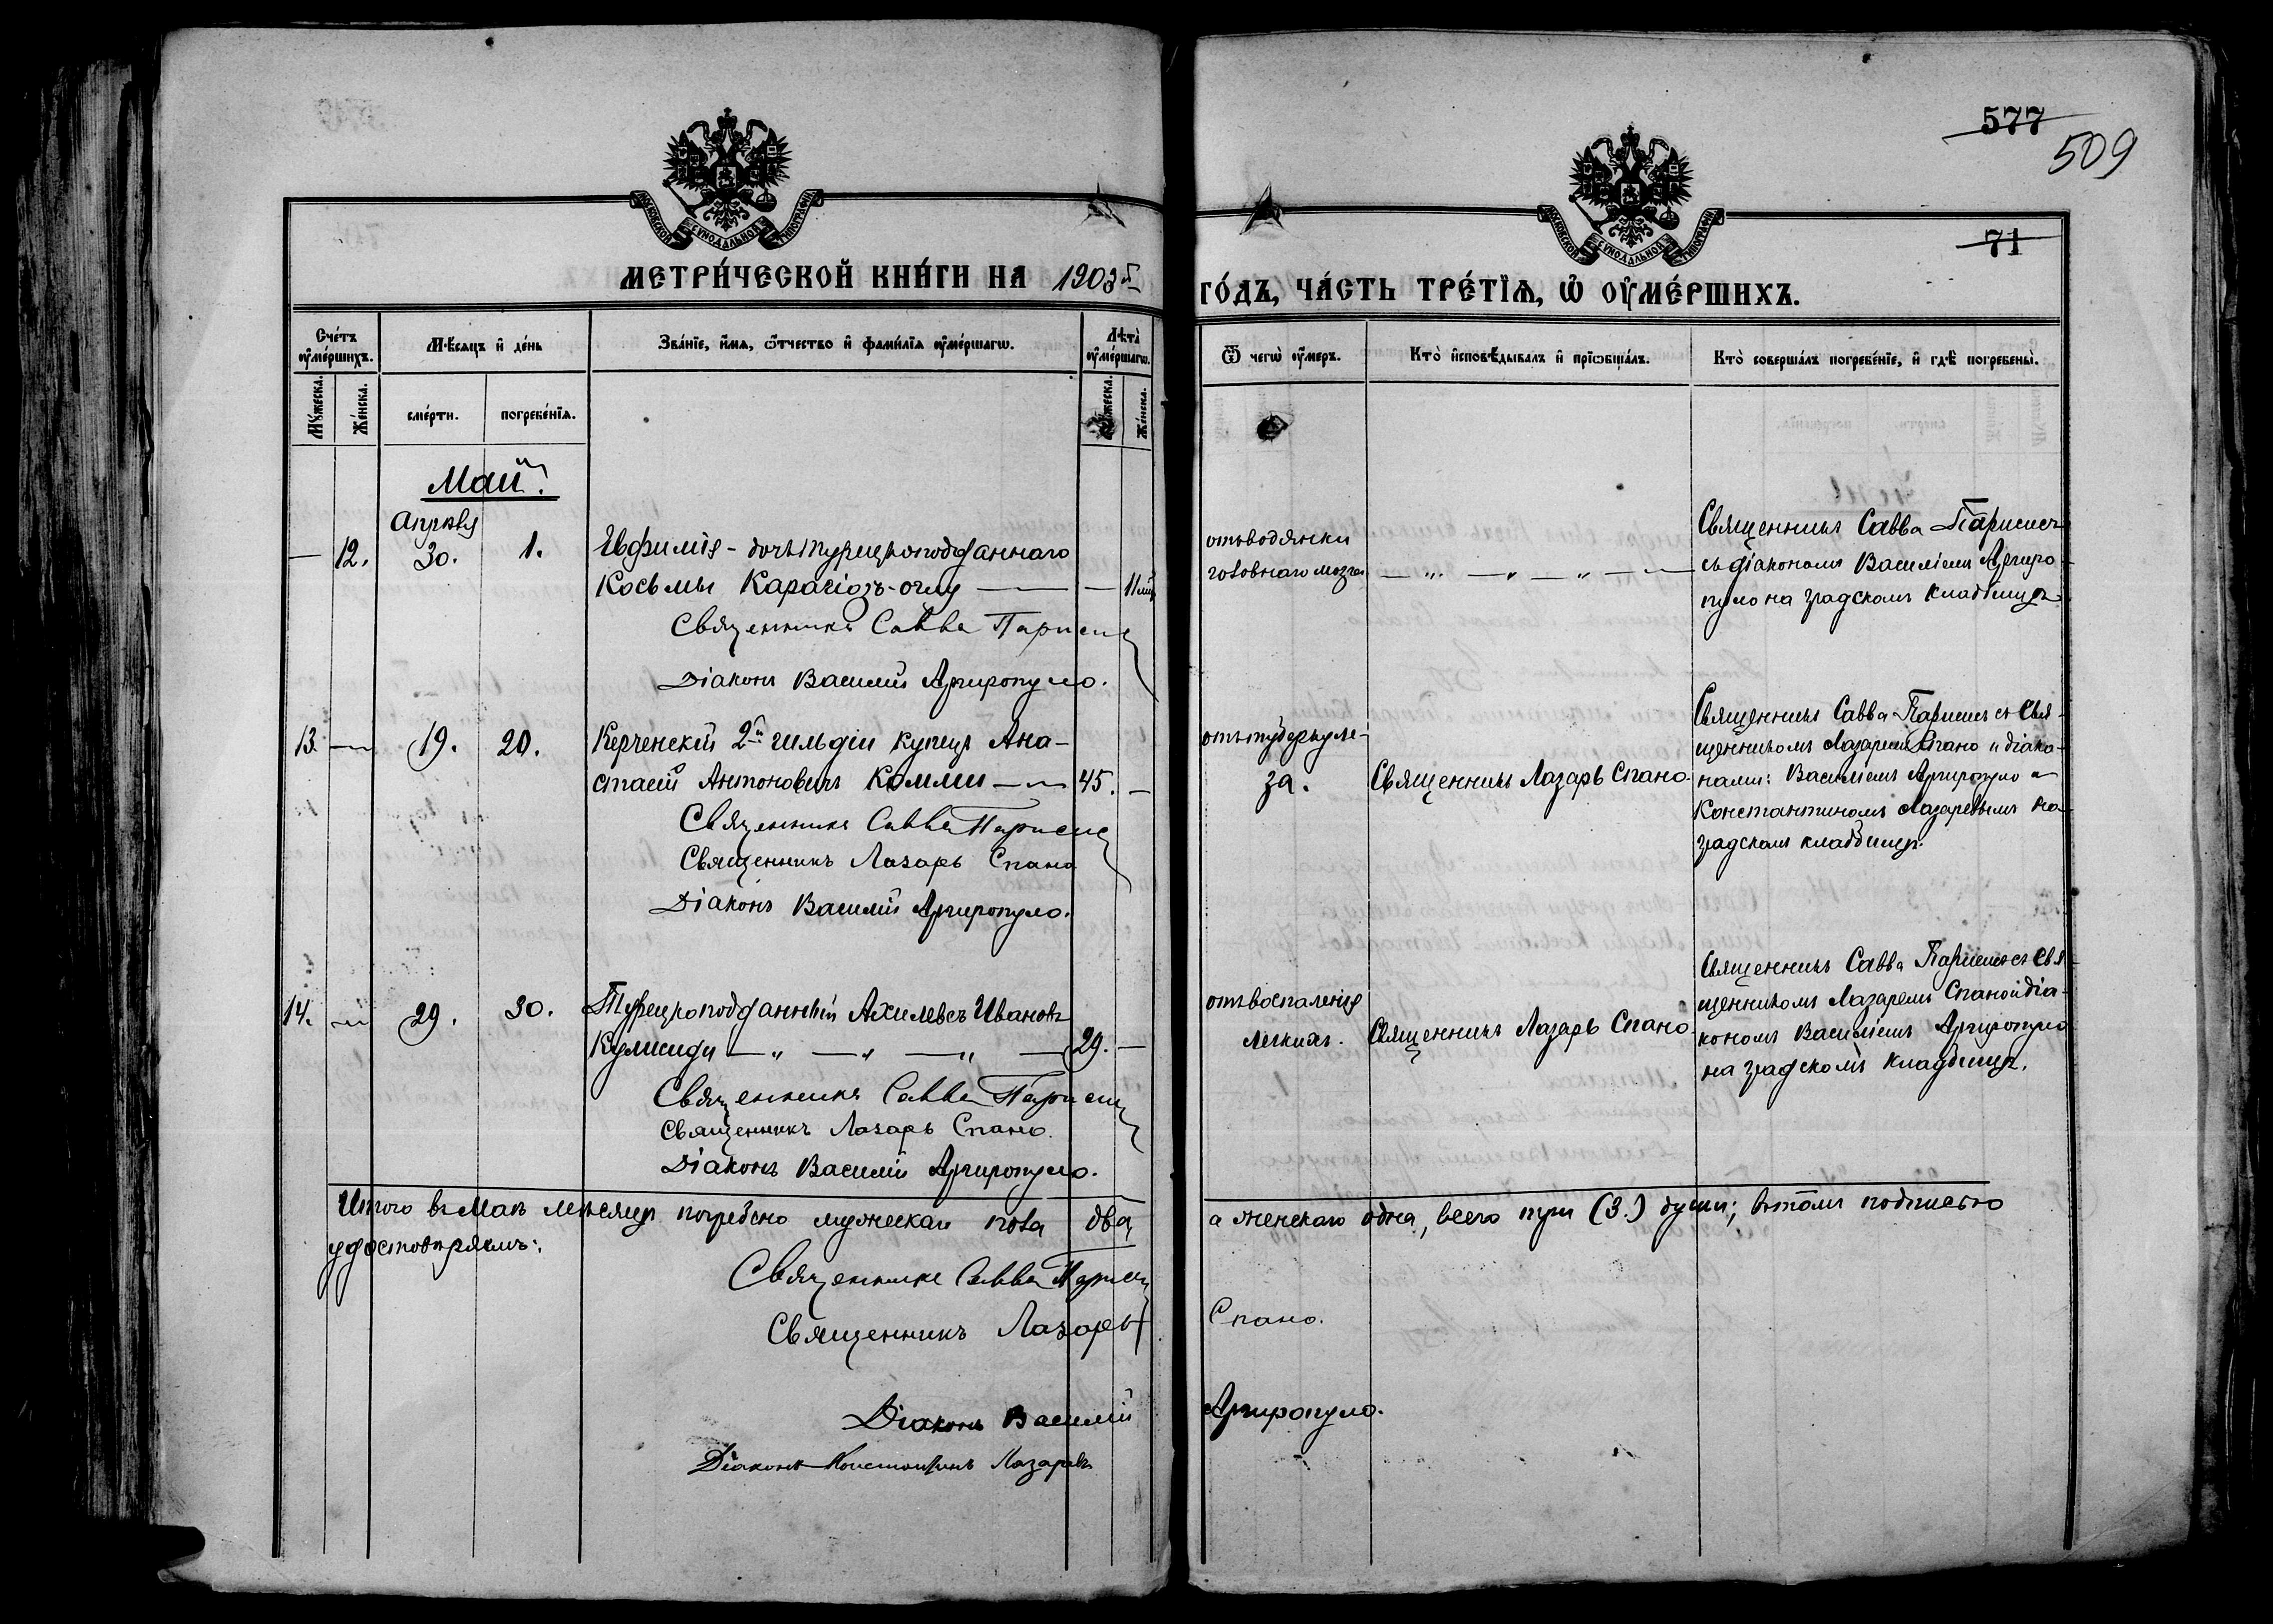 577
509
МОСКОВСКОЙ СѴНОДАЛЬНОЙ ТИПОГРАФІИ
МОСКОВСКОЙ СѴНОДАЛЬНОЙ ТИПОГРАФІИ
71
МЕТРИ́ЧЕСКОЙ КНИ́ГИ НА 1903й
ГО́ДЪ, ЧА́СТЬ ТРЕ́ТЇѦ, Ѡ҆ ОУ҆МЕ́РШИХЪ.
Сче́тъ оу҆ме́ршихъ.
Мꙋ́жеска.
Же́нска.
Мѣ́сяцъ и҆ де́нь
сме́рти.
погребе́нїѧ.
Зва́нїе, и҆́мѧ, ѻ҆́тчество и҆ фами́лїѧ оу҆ме́ршагѡ.
Лѣта̀ оу҆ме́ршагѡ.
Мꙋ́жеска.
Же́нска.
Ѿ чегѡ̀ оу҆́меръ.
Кто̀ и҆сповѣ́дывалъ и҆ прїѡбща́лъ.
Кто̀ соверша́лъ погребе́нїе, и҆ гдѣ̀ погребены̀.
Май.
Апрѣля
— 12. 30. 1. Евфимія - дочь турецкоподданнаго
Косьмы Карагіозъ-оглу — — 11 мѣ
Священникъ Савва Парисис
Діаконъ Василій Аргиропуло.
отъ водянки
головнаго мозга
— „ — „ — „ —
Священникъ Савва Парисисъ
съ діакономъ Василіемъ Аргиро-
пуло на градскомъ кладбищѣ
13. — 19. 20. Керченскій 2й гильдіи купецъ Ана-
стасій Антоновичъ Комми — 45. —
Священникъ Савва Парисис
Священникъ Лазарь Спано
Діаконъ Василій Аргиропуло.
отъ туберкуле-
за.
Священникъ Лазарь Спано.
Священникъ Савва Парисисъ съ Свя-
щенникомъ Лазаремъ Спано и діако-
нами: Василіемъ Аргиропуло и
Константиномъ Лазаревымъ на
градскомъ кладбищѣ.
14. — 29. 30. Турецкоподданный Ахилевсъ Ивановъ
— „ — „ — „ — 29. —
Священникъ Савва Парисис
Священникъ Лазарь Спано.
Діаконъ Василій Аргиропуло.
отъ воспаленія
легкихъ.
Священникъ Лазарь Спано.
Священникъ Савва Парисисъ съ Свя-
щенникомъ Лазаремъ Спано и діа-
кономъ Василіемъ Аргиропуло
на градскомъ кладбищѣ.
Итого въ Маѣ мѣсяцѣ погребено мужескаго пола два,
а женскаго одна, всего три (3.) души; въ томъ подписью
удостовѣряемъ:
Священникъ Савва Парисис
Священникъ Лазарь Спано.
Діаконъ Василій Аргиропуло.
Діаконъ Константинъ Лазаревъ